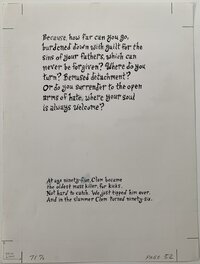 Because, how far can you go,
burdened down with guilt for the
sins of your fathers, which can
never be forgiven? Where do you
turn? Bemused detachment?
Or do you surrender to the open
arms of hate, where your soul
is always welcome?
At age ninety-five, Clem became
the oldest mass killer, for kicks.
Not hard to catch. We just tipped him over.
And in the slammer Clem turned ninety-six.
71%
PAGE 52